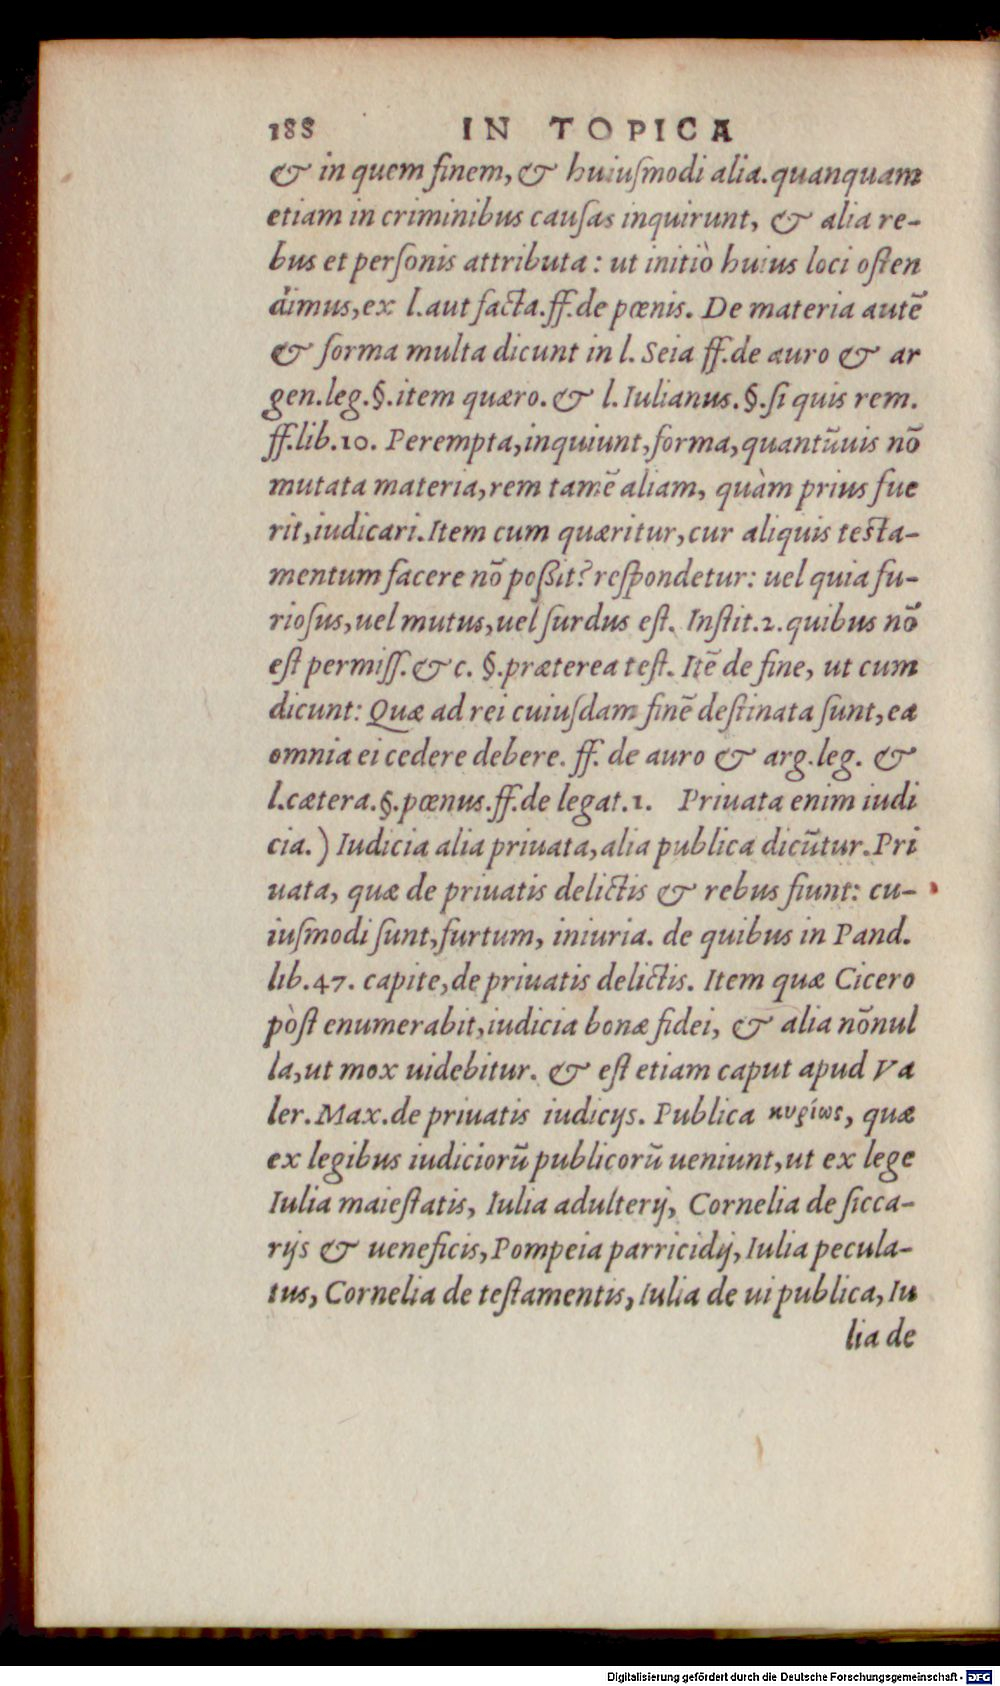 188 IN TOPICA
& in quem finem, & huiuſmodi alia. quanquam
etiam in criminibus cauſas inquirunt, & alia re-
bus et perſonis attributa: ut initiò huius loci oſten
dimus, ex l. aut facta. ff. de pœnis. De materia autē
& forma multa dicunt in l. Seia ff. de auro & ar
gen. leg. §. item quæro. & l. Iulianus. §. ſi quis rem.
ff. lib. 10. Perempta, inquiunt, forma, quantūuis nō
mutata materia, rem tamē aliam, quàm prius fue
rit, iudicari. Item cum quæritur, cur aliquis teſta-
mentum facere nō poßit? reſpondetur: uel quia fu-
rioſus, uel mutus, uel ſurdus eſt. Inſtit. 2. quibus nō
eſt permiſſ. &c. §. præterea teſt. Itē de fine, ut cum
dicunt: Quæ ad rei cuiuſdam finē deſtinata ſunt, ea
omnia ei cedere debere. ff. de auro & arg. leg. &
l. cætera. §. pœnus. ff. de legat. 1. Priuata enim iudi
cia. ) Iudicia alia priuata, alia publica dicūtur. Pri
uata, quæ de priuatis delictis & rebus fiunt: cu-
iuſmodi ſunt, furtum, iniuria. de quibus in Pand.
lib. 47. capite, de priuatis delictis. Item quæ Cicero
pòſt enumerabit, iudicia bonæ fidei, & alia nōnul
la, ut mox uidebitur. & eſt etiam caput apud Va
ler. Max. de priuatis iudicijs. Publica κυρίως, quæ
ex legibus iudiciorū publicorū ueniunt, ut ex lege
Iulia maieſtatis, Iulia adulterij, Cornelia de ſicca-
rijs & ueneficis, Pompeia parricidij, Iulia pecula-
tus, Cornelia de teſtamentis, Iulia de ui publica, Iu
lia de
Digitalisierung gefördert durch die Deutsche Forschungsgemeinschaft - DFG